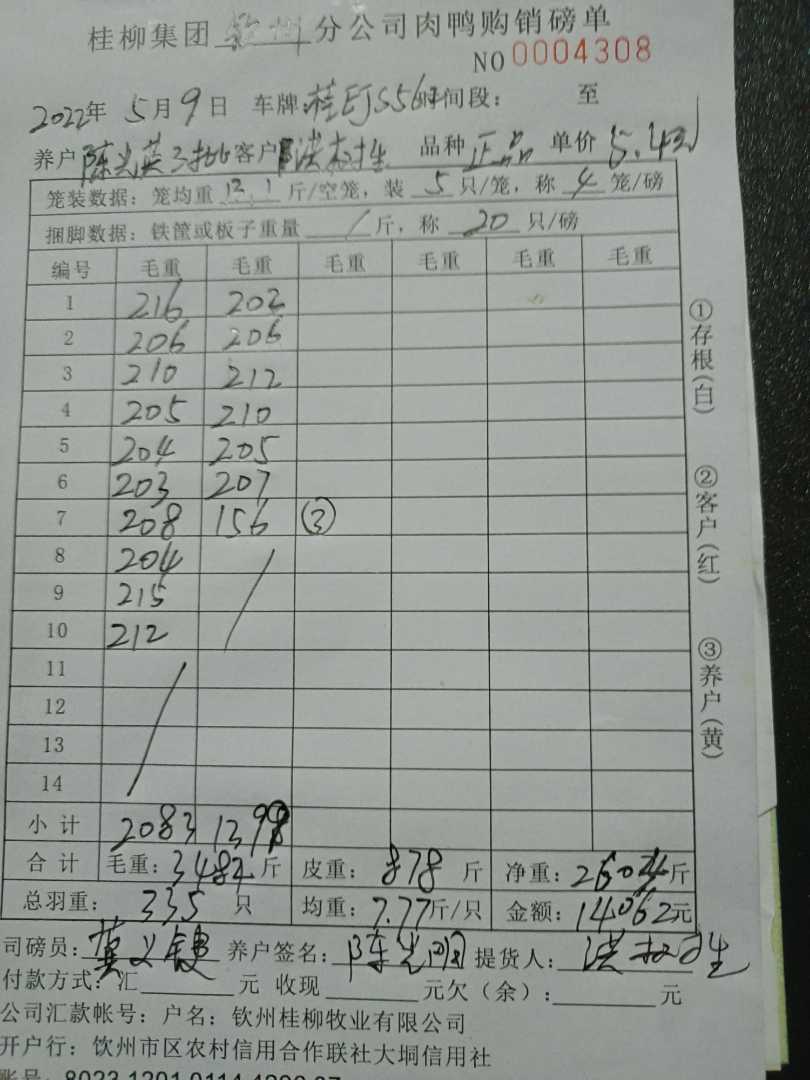 桂柳集团 钦州 分公司肉鸭购销磅单
NO 0004308
2022年 5月9日 车牌:桂EJS56 时间段: 至
养户 陈光英 客户 品种 正品 单价 5.4元
笼装数据:笼均重 12.1 斤/空笼,装 5 只/笼,称 4 笼/磅
捆脚数据:铁筐或板子重量 / 斤,称 20 只/磅
编号 毛重 毛重 毛重 毛重 毛重 毛重
1 216 202
2 206 206
3 210 212
4 205 210
5 204 205
6 203 207
7 208 156 ③
8 204 /
9 215
10 212
11 /
12
13
14
小计 2083 1398
合计 毛重:3482斤 皮重:878斤 净重:2604斤
总羽重:335只 均重:7.77斤/只 金额:14062元
司磅员: 养户签名:陈光明 提货人:
付款方式:汇 元 收现 元欠(余): 元
公司汇款帐号:户名:钦州桂柳牧业有限公司
开户行:钦州市区农村信用合作联社大垌信用社
账号:8023 1201 0114
①存根(白)
②客户(红)
③养户(黄)